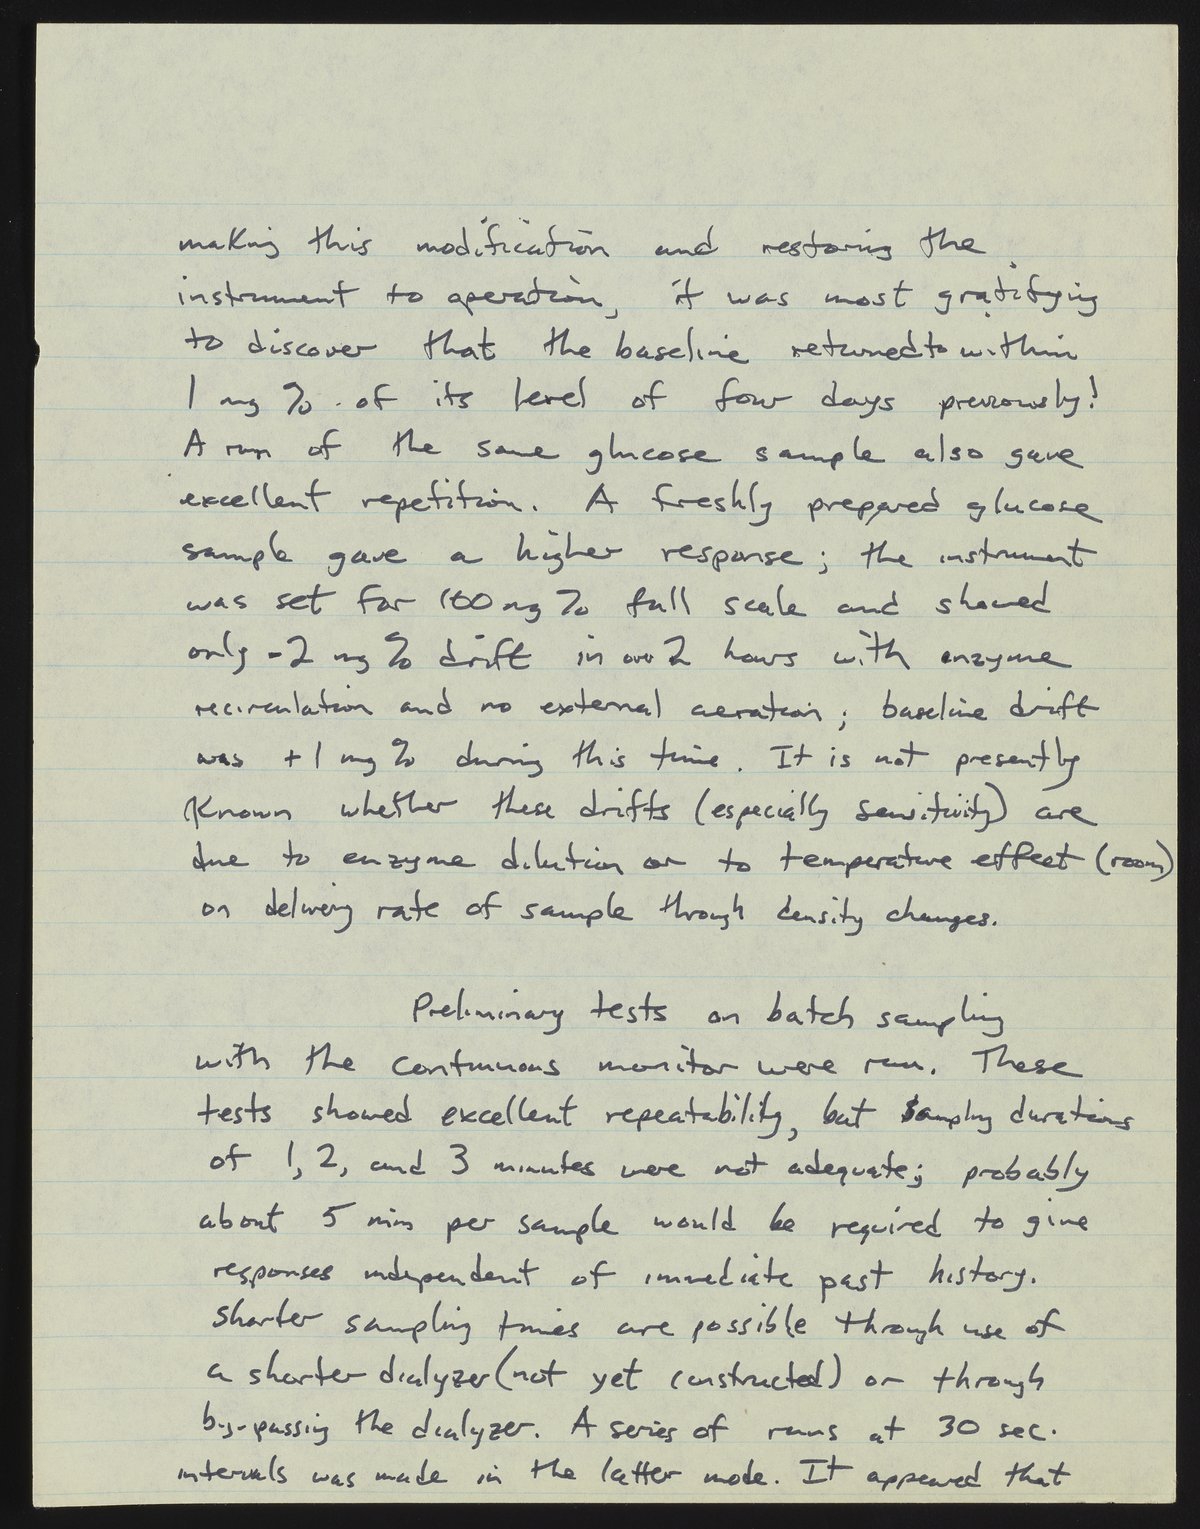 making this modification and restoring the
instrument to operation, it was most gratifying
to discover that the baseline returned to within
1 mg % of its level of four days previously!
A run of the same glucose sample also gave
excellent repetition. A freshly prepared glucose
sample gave a higher response; the instrument
was set for 100 mg % full scale and showed
only -2 mg % drift in over 2 hours with enzyme
recirculation and no external aeration; baseline drift
was +1 mg % during this time. It is not presently
Known whether these drifts (especially sensitivity) are
due to enzyme dilution or to temperature effect (room)
on delivery rate of sample through density changes.
Preliminary tests on batch sampling
with the continuous monitor were run. These
tests showed excellent repeatability, but sampling durations
of 1, 2, and 3 minutes were not adequate; probably
about 5 min per sample would be required to give
responses independent of immediate past history.
Shorter sampling times are possible through use of
a shorter dialyzer (not yet constructed) or through
by-passing the dialyzer. A series of runs at 30 sec.
intervals was made in the latter mode. It appeared that